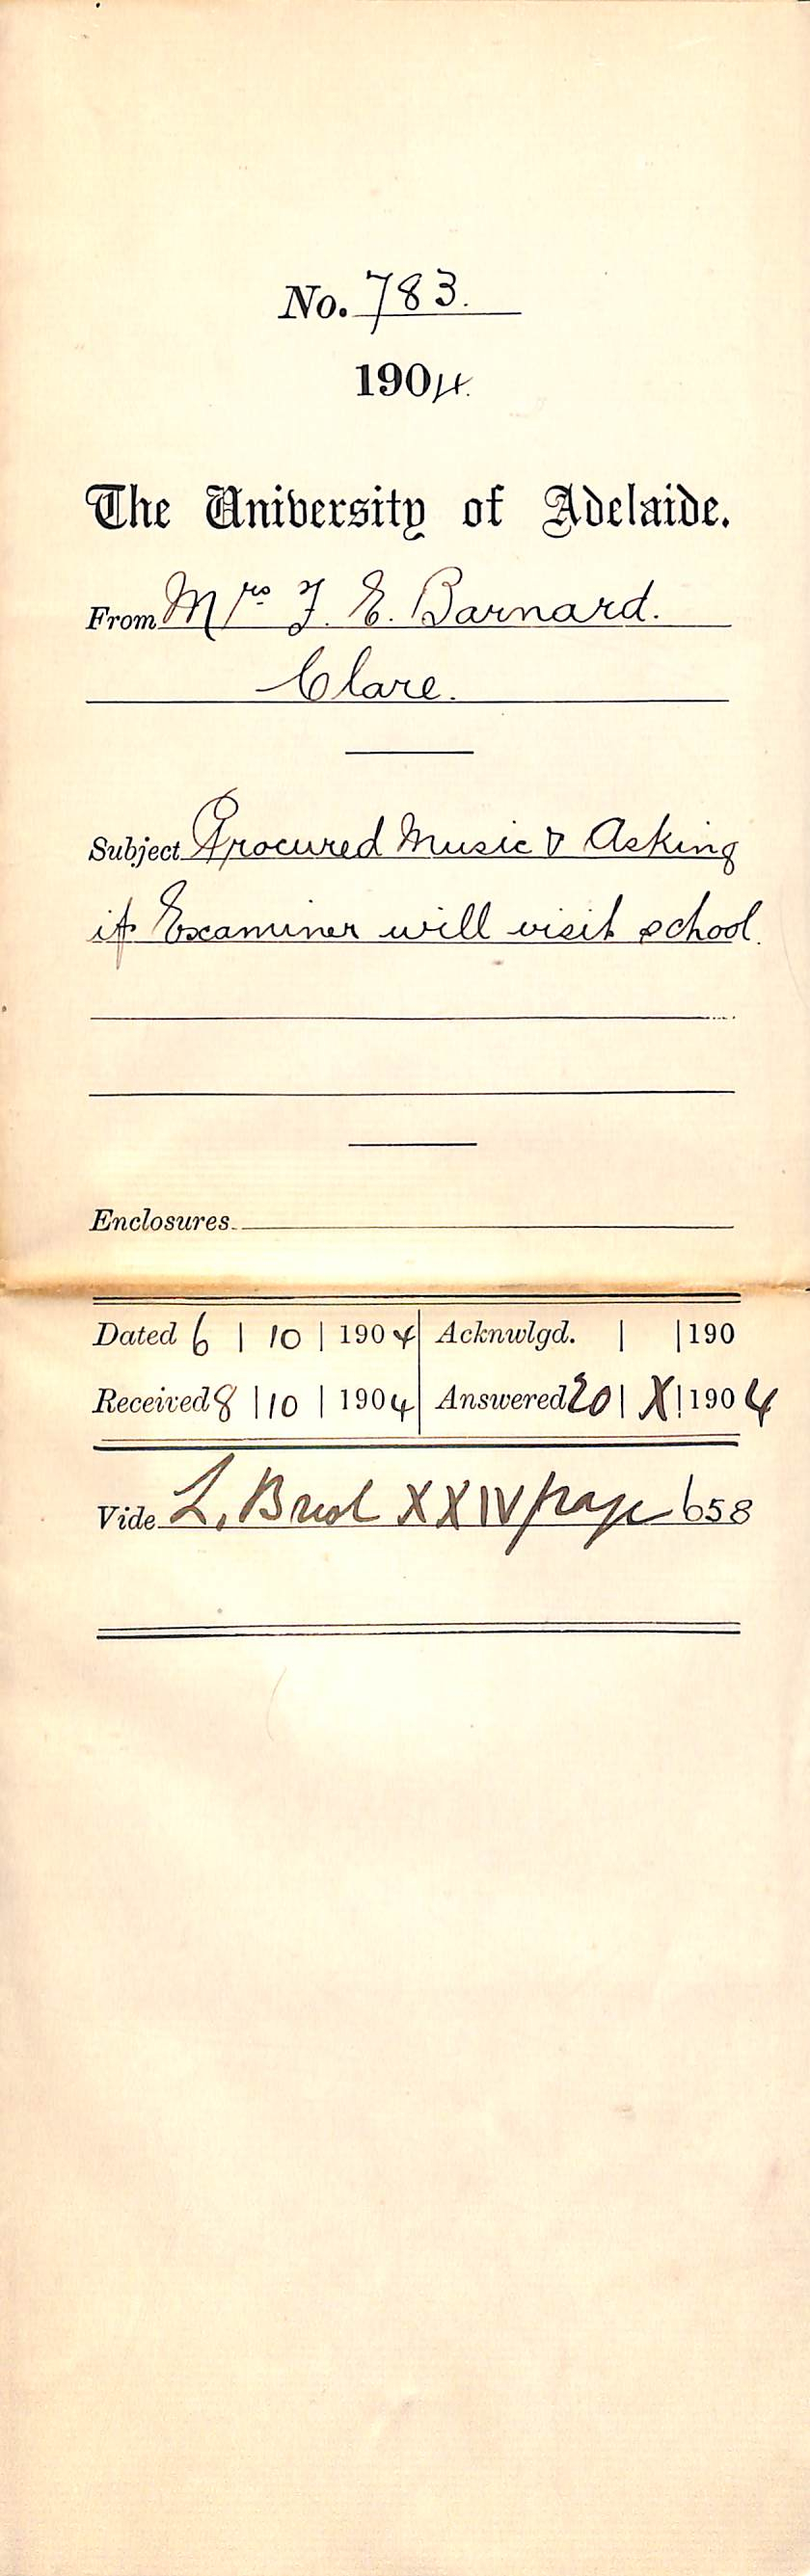 No. 783.
1904.
The University of Adelaide.
From Mrs F. E. Barnard.
Clare.
Subject Procured Music & Asking
if Examiner will visit school.
Enclosures
Dated 6 | 10 | 1904 Acknwlgd. | | 190
Received 8 | 10 | 1904 Answered 20 | X | 1904
Vide L. XXIV page 658